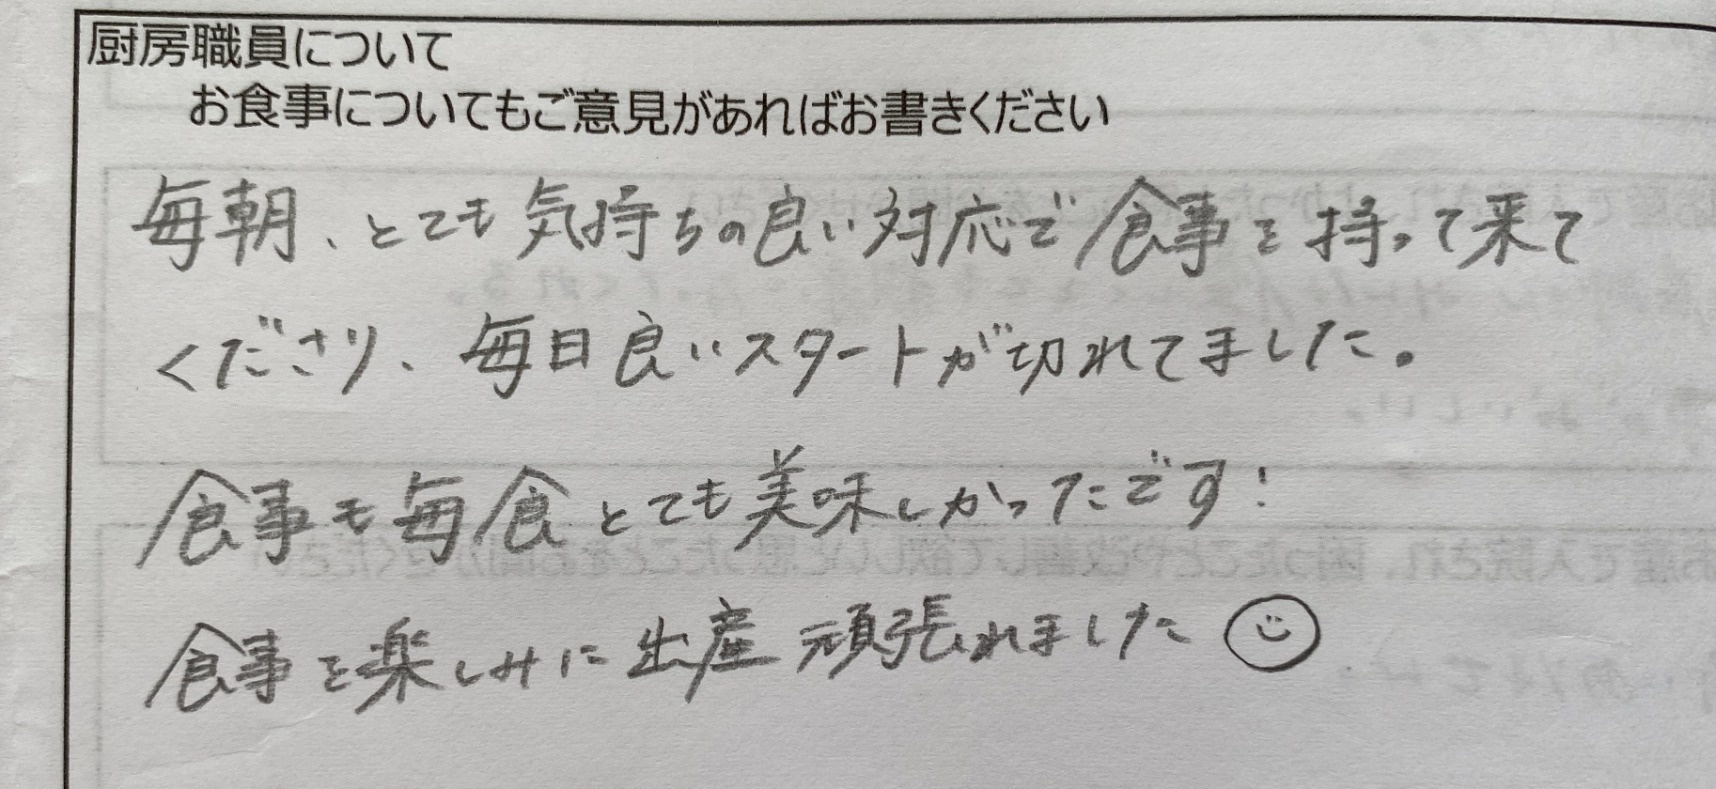 厨房職員について
お食事についてもご意見があればお書きください
毎朝、とても気持ちの良い対応で食事を持って来て
くださり、毎日良いスタートが切れてました。
食事も毎食とても美味しかったです!
食事を楽しみに出産頑張れました